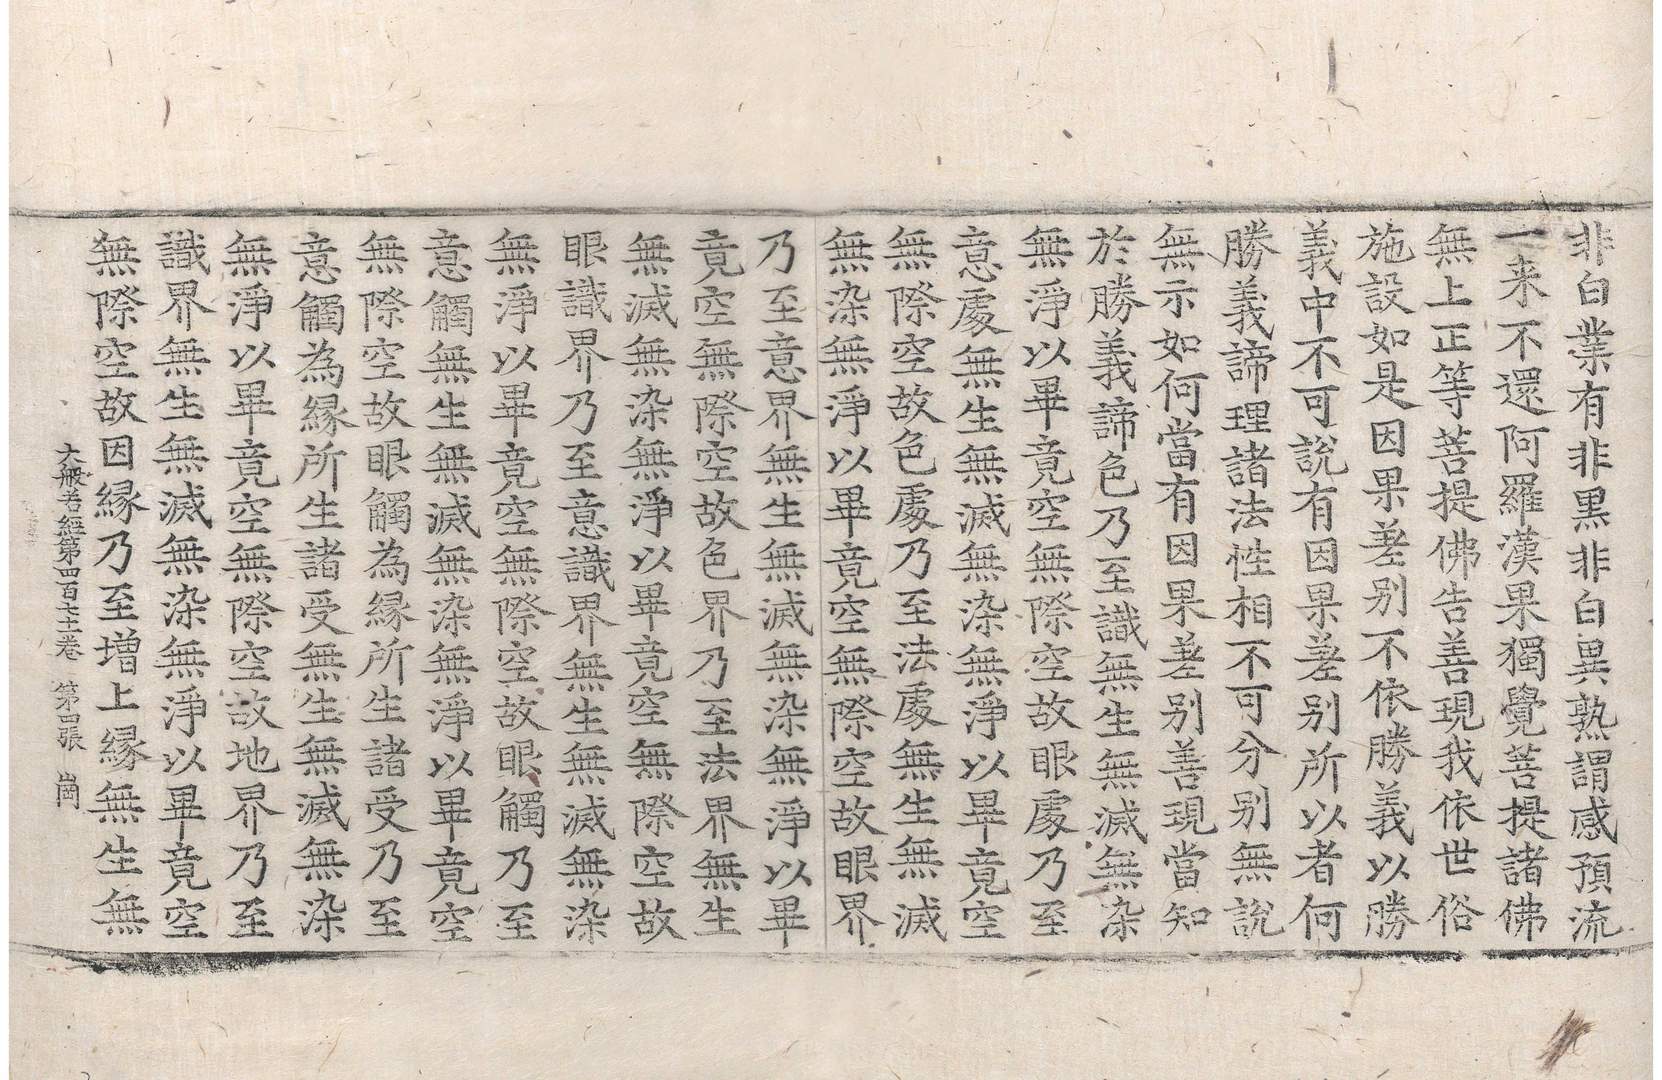 非白業有非黒非白異熟謂感預流
一来不還阿羅漢果獨覺菩提諸佛
無上正等菩提佛告善現我依世俗
施設如是因果差别不依勝義以勝
義中不可說有因果差别所以者何
勝義諦理諸法性相不可分别無說
無示如何當有因果差别善現當知
於勝義諦色乃至識無生無滅無染
無淨以畢竟空無際空故眼處乃至
意處無生無滅無染無淨以畢竟空
無際空故色處乃至法處無生無滅
無染無淨以畢竟空無際空故眼界
乃至意界無生無滅無染無淨以畢
竟空無際空故色界乃至法界無生
無滅無染無淨以畢竟空無際空故
眼識界乃至意識界無生無滅無染
無淨以畢竟空無際空故眼觸乃至
意觸無生無滅無染無淨以畢竟空
無際空故眼觸為縁所生諸受乃至
意觸為縁所生諸受無生無滅無染
無淨以畢竟空無際空故地界乃至
識界無生無滅無染無淨以畢竟空
無際空故因縁乃至増上縁無生無
大般若經第四百七十一卷 第四張 崗